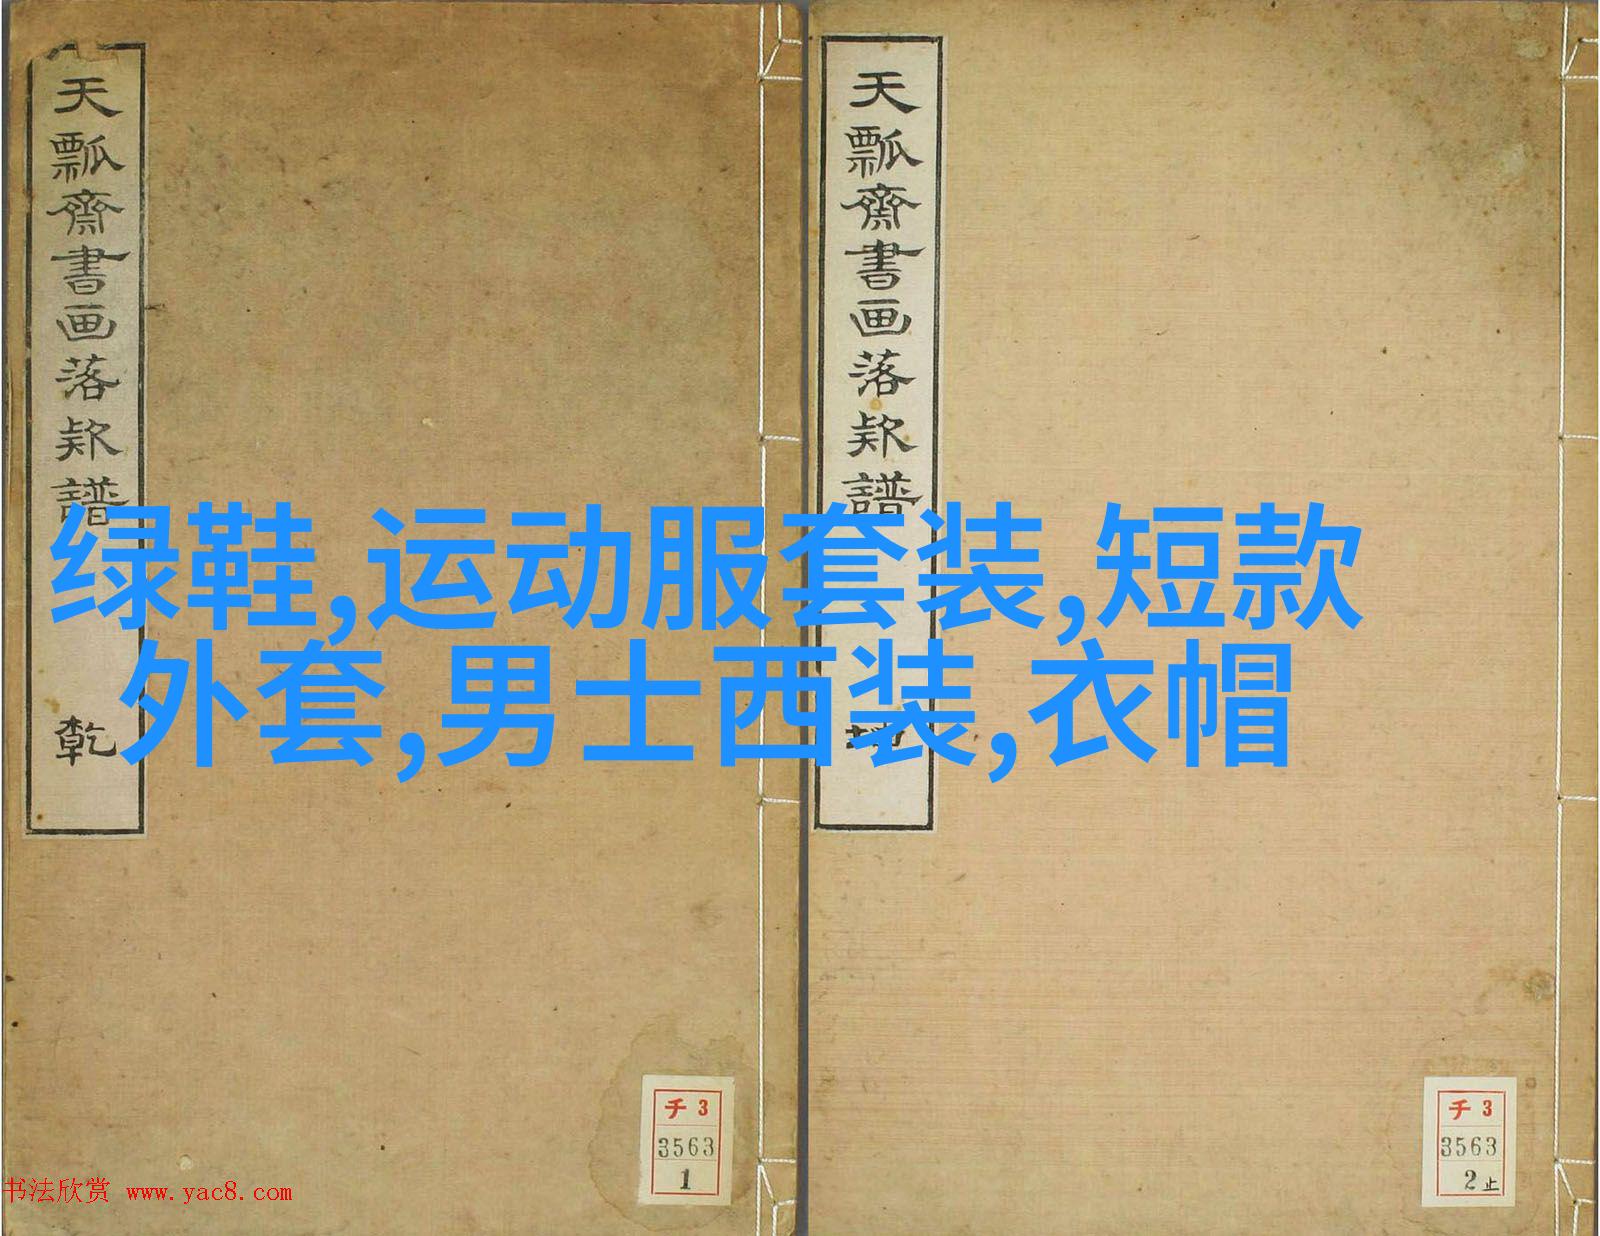 天瓢齋書画落款譜
乾
天瓢齋書画落款譜
绿鞋,运动服套装,短款
外套,男士西装,衣帽
チ3
3563
1
チ3
3563
2止
书法欣赏 www.yac8.com